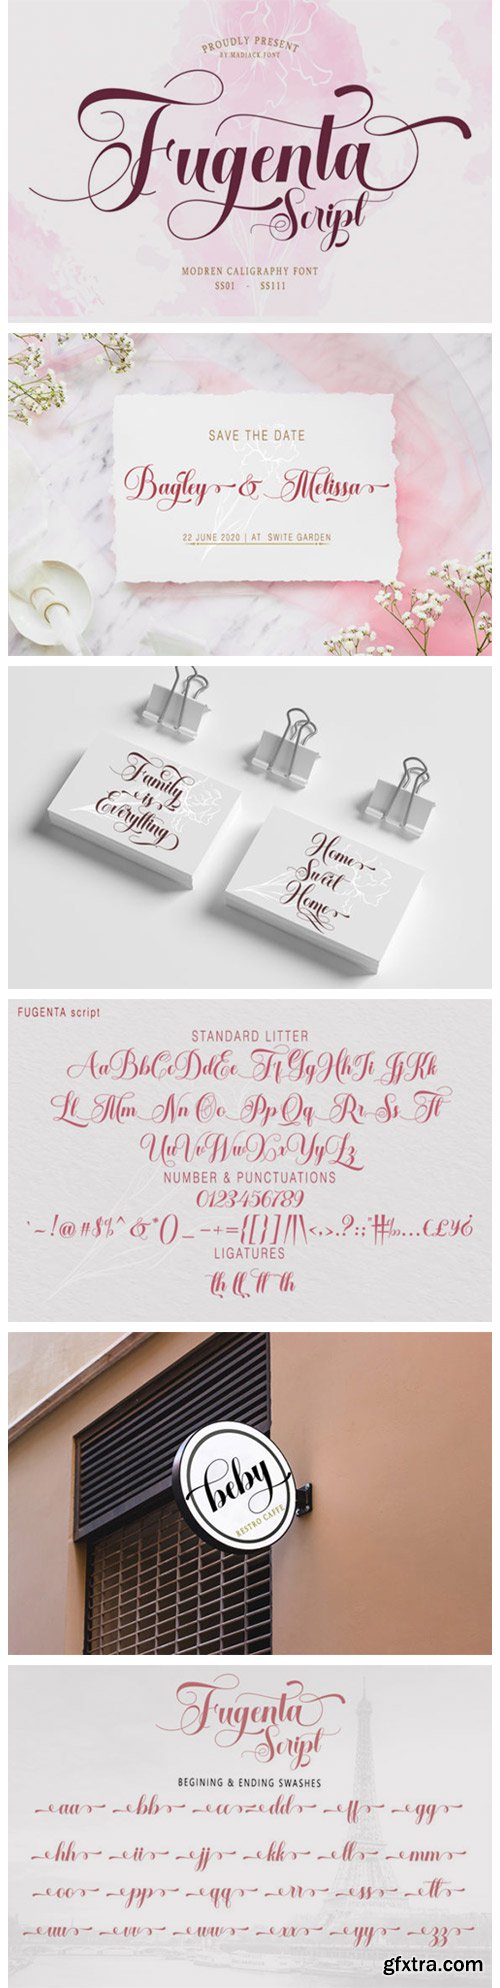 PROUDLY PRESENT
BY MADJACK FONT
Fugenta
Script
MODREN CALIGRAPHY FONT
SS01 - SS111
SAVE THE DATE
Bagley & Melissa
22 JUNE 2020 | AT SWITE GARDEN
Family
is
Everything
Home
Sweet
Home
FUGENTA script
STANDARD LITTER
AaBbCcDdEe FfGgHhIi JjKk
Ll Mm Nn Oo Pp Qq Rr Ss Tt
UuVvWwXxYyZz
NUMBER & PUNCTUATIONS
0123456789
`~!@#$%^&*()_-+={[}]/|\<,>.?:;"‰…€£¥¿
LIGATURES
th ll tt th
beby
RESTRO CAFFE
Fugenta
Script
BEGINING & ENDING SWASHES
aa bb cc dd ff gg
hh ii jj kk ll mm
oo pp qq rr ss tt
uu vv ww xx yy zz
gfxtra.com